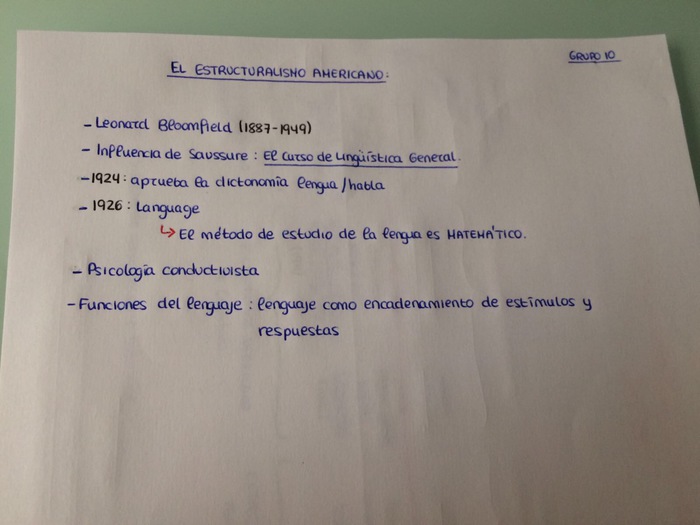 GRUPO 10
EL ESTRUCTURALISMO AMERICANO:
- Leonard Bloomfield (1887-1949)
- Influencia de Saussure : El Curso de Lingüística General.
- 1924: aprueba la dictonomía lengua/habla
- 1926: Language
↳ El método de estudio de la lengua es MATEMÁTICO.
- Psicología conductivista
- Funciones del lenguaje : lenguaje como encadenamiento de estímulos y
respuestas